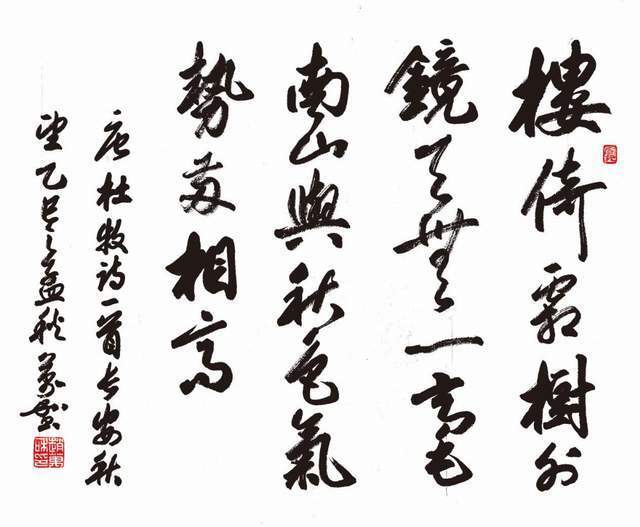 樓倚霜樹外
鏡天無一毫
南山與秋色氣
勢兩相高
唐杜牧诗一首长安秋
望乙巳之孟秋